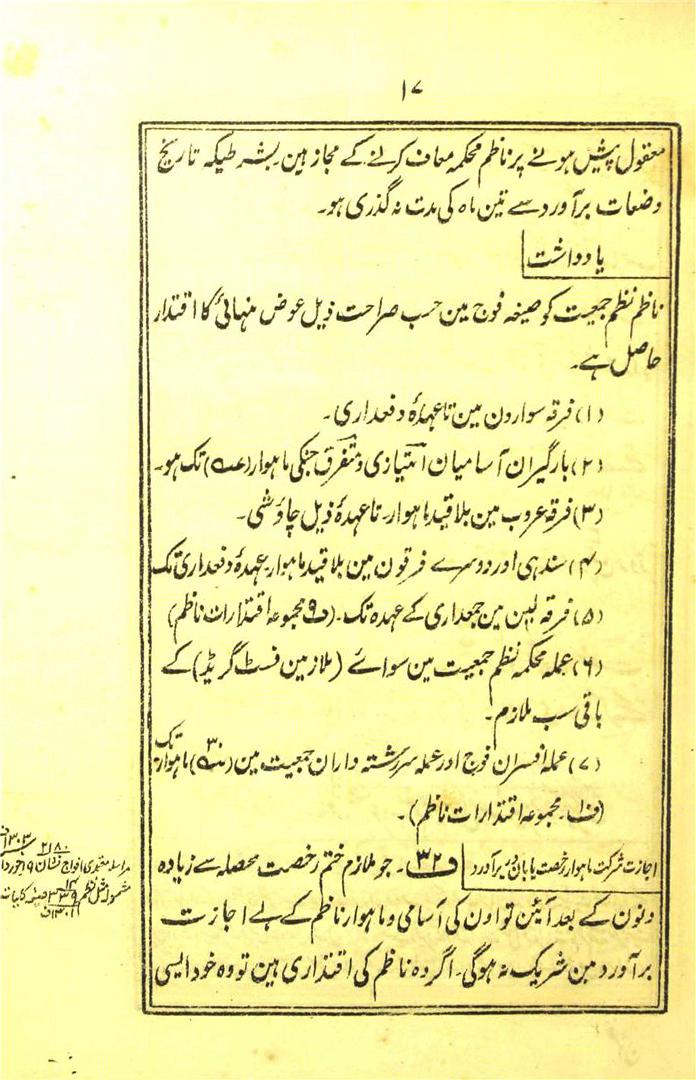 ۱۷
معقول پیش ہونے پر ناظم محکمہ معاف کرنے کے مجاز ہین بشرطیکہ تاریخ
وضعات برآورد سے تین ماہ کی مدت نہ گذری ہو۔
یادداشت
ناظم نظم جمعیت کو صیغہ فوج مین حسب صراحت ذیل عوض منہائی کا اقتدار
حاصل ہے۔
(۱) فرقہ سوارون مین تا عہدۂ دفعداری۔
(۲) بارگیران آسامیان امتیازی و متفرق جنکی ماہوار تک ہو۔
(۳) فرقہ عروب مین بلا قید ماہوار۔ تا عہدۂ ذیل چاؤشی۔
(۴) سندہی اور دوسرے فرقون مین بلا قید ماہوار عہدۂ دفعداری تک
(۵) فرقہ لین مین جمعداری کے عہدہ تک۔ (ف۹ مجموعہ اقتدارات ناظم)
(۶) عملہ محکمہ نظم جمعیت مین سوائے (ملازمین فسٹ گریڈ) کے
باقی سب ملازم۔
(۷) عملہ افسران فوج اور عملہ سررشتہ داران جمعیت مین ماہوار تک
(ف۱۰۔ مجموعہ اقتدارات ناظم)۔
اجازت شرکت ماہوار رخصت یابان در برآورد
ف۳۲۔ جو ملازم ختم رخصت محصلہ سے زیادہ
دنون کے بعد آئین تو اون کی آسامی و ماہوار ناظم کے بے اجازت
برآورد مین شریک نہ ہوگی۔ اگر وہ ناظم کی اقتداری ہین تو وہ خود ایسی
مراسلہ معتمدی افواج نشان